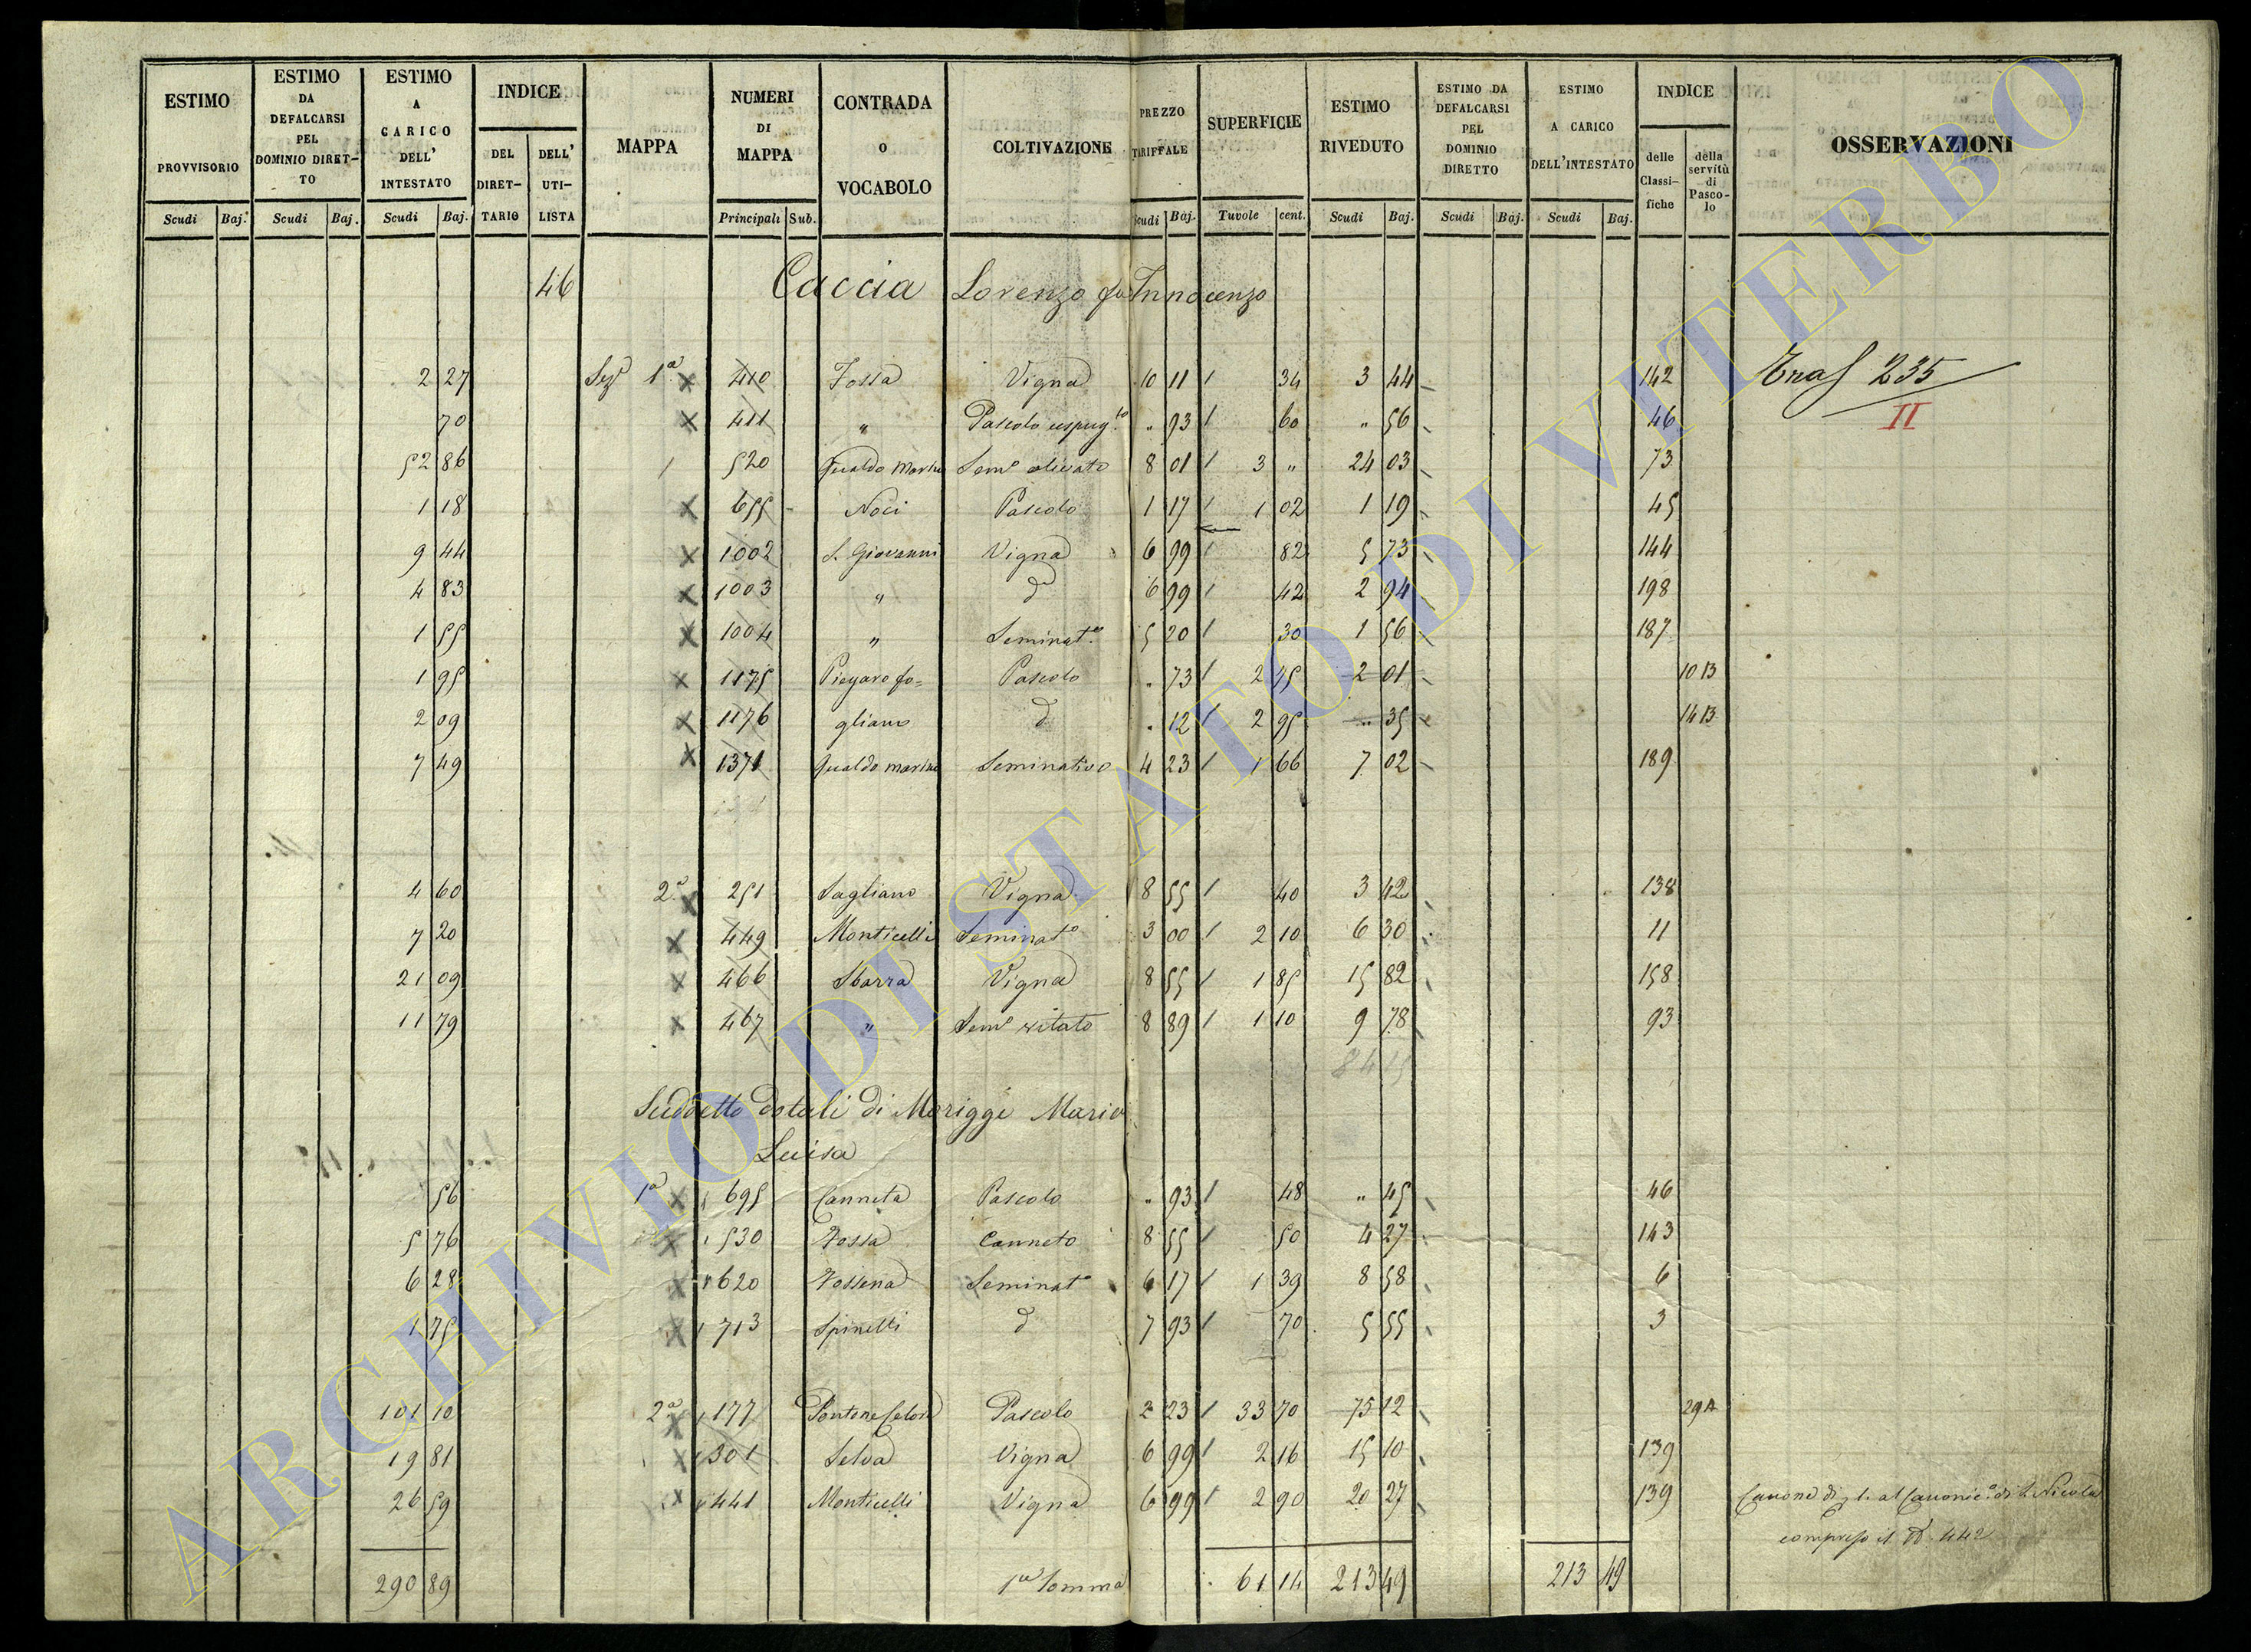 ESTIMO PROVVISORIO | ESTIMO DA DEFALCARSI PEL DOMINIO DIRETTO | ESTIMO A CARICO DELL' INTESTATO | INDICE DEL DIRETTARIO | DELL' UTILISTA | MAPPA | NUMERI DI MAPPA | CONTRADA O VOCABOLO | COLTIVAZIONE | PREZZO TARIFFALE | SUPERFICIE | ESTIMO RIVEDUTO | ESTIMO DA DEFALCARSI PEL DOMINIO DIRETTO | ESTIMO A CARICO DELL'INTESTATO | INDICE delle Classifiche | della servitù di Pascolo | OSSERVAZIONI
Scudi Baj. Scudi Baj. Scudi Baj. Principali Sub. Scudi Baj. Tavole cent. Scudi Baj. Scudi Baj. Scudi Baj.
46 Caccia Lorenzo fu Innocenzo
2 27 Sezᵉ 1ª x 410 Fossa Vigna 10 11 34 3 44 142 Tras 235
II
70 x 411 " Pascolo cespugᵗᵒ " 93 60 " 56 46
52 86 520 Gualdo Marino Semᵒ olivato 8 01 3 " 24 03 73
1 18 x 655 Noci Pascolo 1 17 1 02 1 19 45
9 44 x 1002 S. Giovanni Vigna 6 99 82 5 73 144
4 83 x 1003 " dᵒ 6 99 42 2 94 198
1 55 x 1004 " Seminatᵒ 5 20 30 1 56 187
1 95 x 1175 Piegaro fo= Pascolo " 73 2 75 2 01 10 B
2 09 x 1176 gliano dᵒ " 12 2 95 " 35 14 B
7 49 x 1371 Gualdo marino Seminativo 4 23 1 66 7 02 189
4 60 2ª x 251 Sagliano Vigna 8 55 40 3 42 138
7 20 x 449 Monticelli Seminatᵒ 3 00 2 10 6 30 11
21 09 x 466 Sbarra Vigna 8 55 1 85 15 82 158
11 79 x 467 " Semᵒ vitato 8 89 1 10 9 78 93
84 15
Suddetto dotali di Morigge Maria
Luisa
56 1ª x 695 Canneta Pascolo " 93 48 " 45 46
5 76 x 530 Fossa Canneto 8 55 50 4 27 143
6 28 x 620 Fossena Seminatᵒ 6 17 1 39 8 58 6
1 75 x 713 Spinelli dᵒ 7 93 70 5 55 3
101 10 2ª x 177 Pascolo 2 23 33 70 75 12 29 A
19 81 x 301 Selva Vigna 6 99 2 16 15 10 139
26 59 x 441 Monticelli Vigna 6 99 2 90 20 27 139 Canone di 1. al Canonicᵒ di S. Nicola
compreso il Nᵒ 442
290 89 1ª Somma 61 14 213 49 213 49
ARCHIVIO DI STATO DI VITERBO